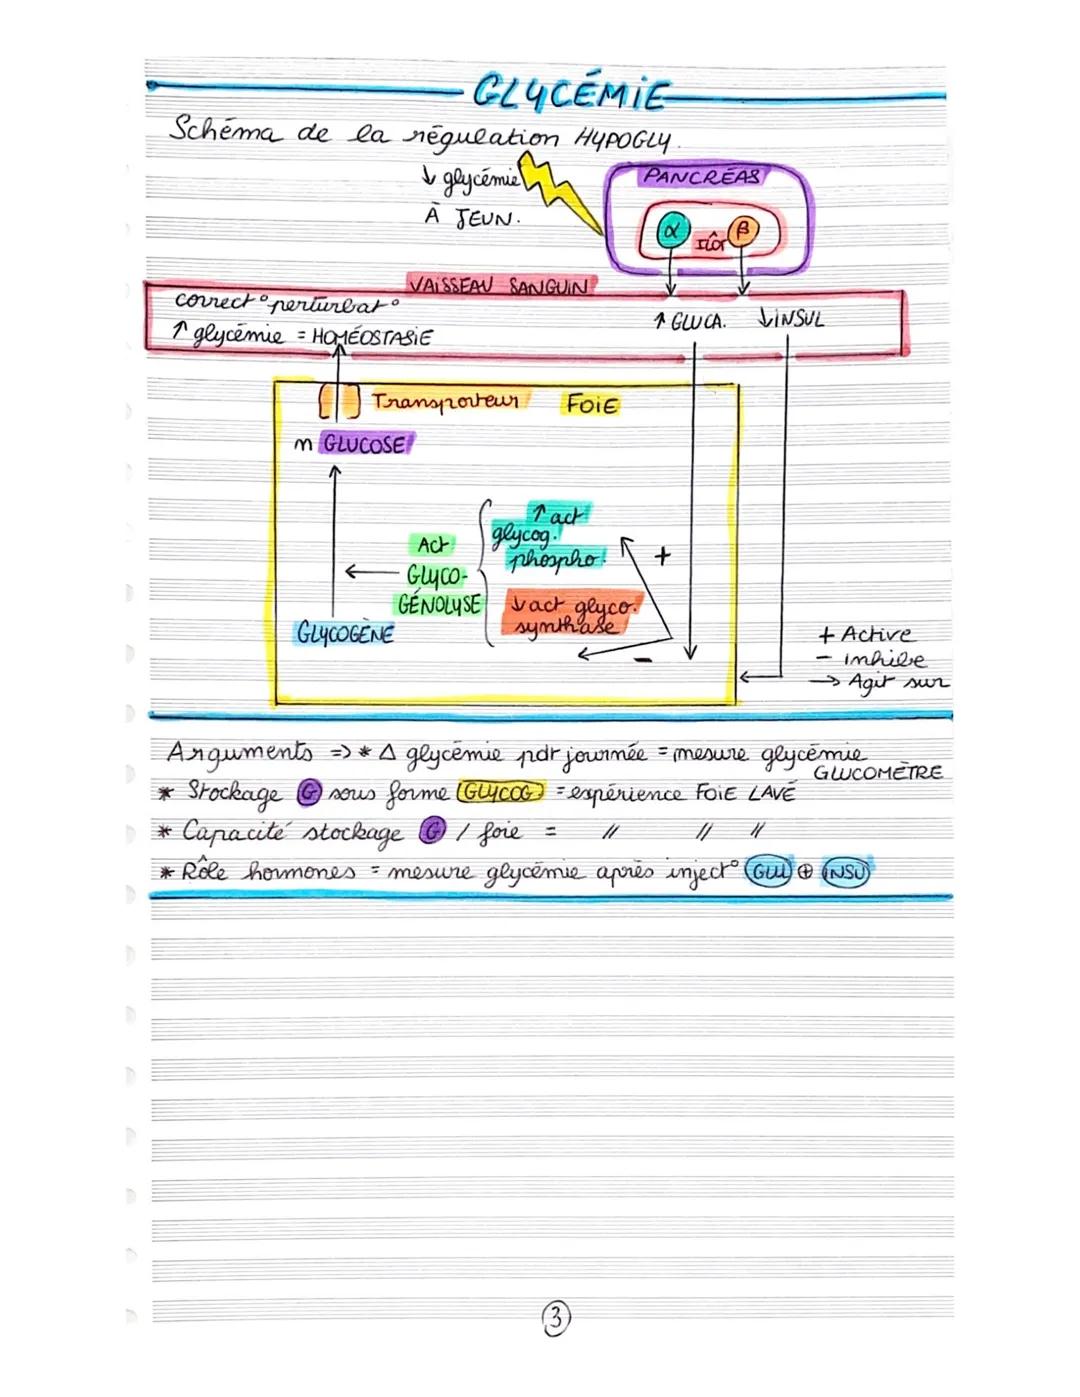 GLYCÉMIE
Schéma de la régulation HYPOGLY.
↓ glycémie
À JEUN.
PANCRÉAS
α îlôt β
VAISSEAU SANGUIN
correct° perturbat°
↑ glycémie = HOMÉOSTASIE
↑ GLUCA. ↓ INSUL
Transporteur FOIE
m GLUCOSE
↑ act
glycog.
phospho.
+
Act
GLYCO-
GÉNOLYSE
↓ act glyco.
synthase
GLYCOGÈNE
-
+ Active
- inhibe
→ Agit sur
Arguments => * Δ glycémie pdt journée = mesure glycémie
GLUCOMÈTRE
* Stockage G sous forme GLYCOG = expérience FOIE LAVÉ
* Capacité stockage G / foie = " " "
* Rôle hormones = mesure glycémie après inject° GLU ⊕ INSU
3